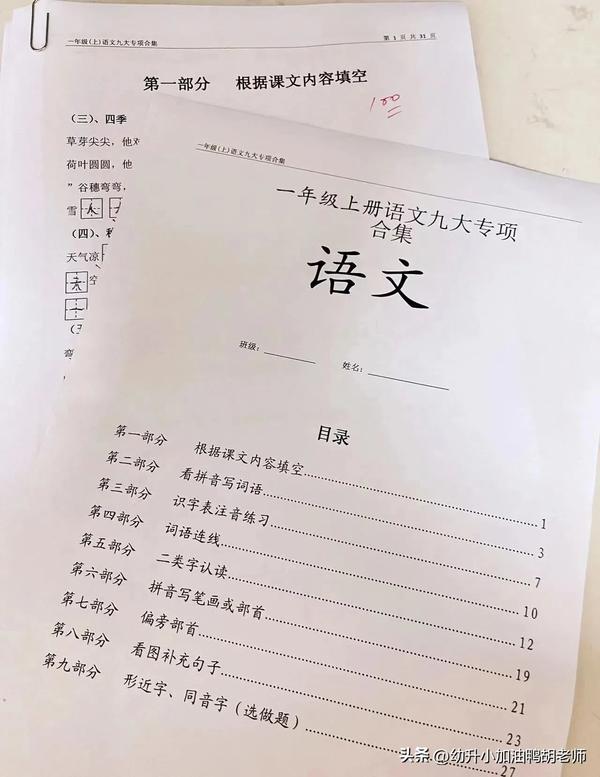 一年级(上)语文九大专项合集
第 1 页 共 31 页
第一部分 根据课文内容填空
100
(三)、四季
草芽尖尖，他对
荷叶圆圆，他
”谷穗弯弯，
雪
(四)、
天气凉
空
弯
一年级(上)语文九大专项合集
一年级上册语文九大专项
合集
语文
班级：
姓名：
目录
第一部分 根据课文内容填空 1
第二部分 看拼音写词语 3
第三部分 识字表注音练习 7
第四部分 词语连线 10
第五部分 二类字认读 12
第六部分 拼音写笔画或部首 19
第七部分 偏旁部首 21
第八部分 看图补充句子 23
第九部分 形近字、同音字（选做题） 27
头条 @幼升小加油鸭胡老师